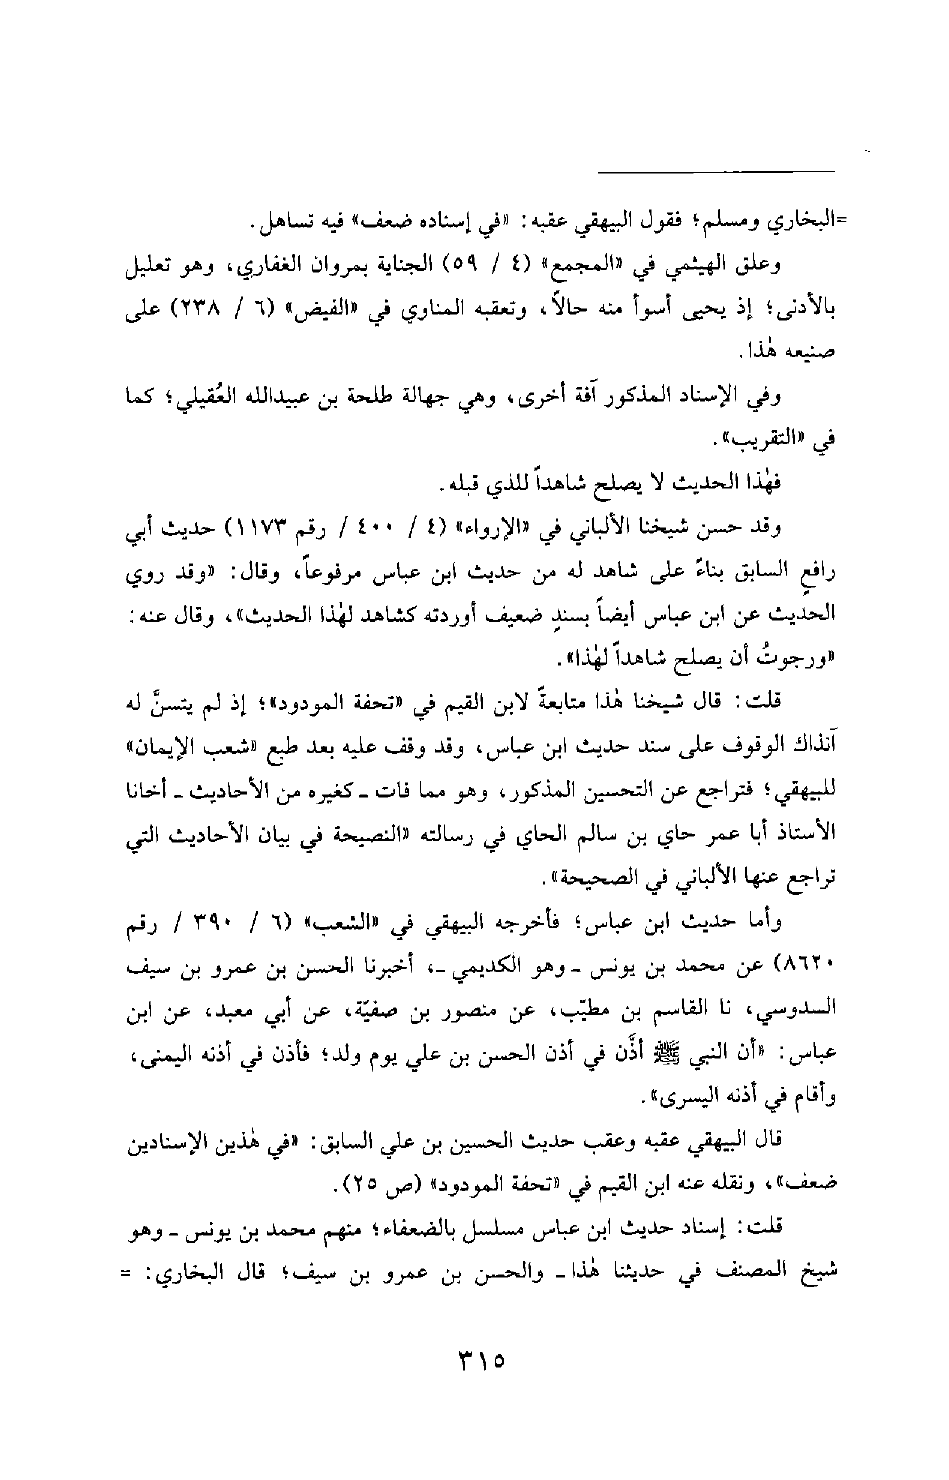 =البخاري ومسلم؛ فقول البيهقي عقبه: «في إسناده ضعف» فيه تساهل.
وعلق الهيثمي في «المجمع» (٤ / ٥٩) الجناية بمروان الغفاري، وهو تعليل
بالأدنى؛ إذ يحيى أسوأ منه حالاً، وتعقبه المناوي في «الفيض» (٦ / ٢٣٨) على
صنيعه هٰذا.
وفي الإسناد المذكور آفة أخرى، وهي جهالة طلحة بن عبيدالله العُقيلي؛ كما
في «التقريب».
فهٰذا الحديث لا يصلح شاهداً للذي قبله.
وقد حسن شيخنا الألباني في «الإرواء» (٤ / ٤٠٠ / رقم ١١٧٣) حديث أبي
رافع السابق بناءً على شاهد له من حديث ابن عباس مرفوعاً، وقال: «وقد روي
الحديث عن ابن عباس أيضاً بسندٍ ضعيف أوردته كشاهد لهٰذا الحديث»، وقال عنه:
«ورجوتُ أن يصلح شاهداً لهٰذا».
قلت: قال شيخنا هٰذا متابعةً لابن القيم في «تحفة المودود»؛ إذ لم يتسنَّ له
آنذاك الوقوف على سند حديث ابن عباس، وقد وقف عليه بعد طبع «شعب الإيمان»
للبيهقي؛ فتراجع عن التحسين المذكور، وهو مما فات ـ كغيره من الأحاديث ـ أخانا
الأستاذ أبا عمر حاي بن سالم الحاي في رسالته «النصيحة في بيان الأحاديث التي
تراجع عنها الألباني في الصحيحة».
وأما حديث ابن عباس؛ فأخرجه البيهقي في «الشعب» (٦ / ٣٩٠ / رقم
٨٦٢٠) عن محمد بن يونس ـ وهو الكديمي ـ، أخبرنا الحسن بن عمرو بن سيف
السدوسي، نا القاسم بن مطيّب، عن منصور بن صفيّة، عن أبي معبد، عن ابن
عباس: «أن النبي ﷺ أذَّن في أذن الحسن بن علي يوم ولد؛ فأذن في أذنه اليمنى،
وأقام في أذنه اليسرى».
قال البيهقي عقبه وعقب حديث الحسين بن علي السابق: «في هٰذين الإسنادين
ضعف»، ونقله عنه ابن القيم في «تحفة المودود» (ص ٢٥).
قلت: إسناد حديث ابن عباس مسلسل بالضعفاء؛ منهم محمد بن يونس ـ وهو
شيخ المصنف في حديثنا هٰذا ـ والحسن بن عمرو بن سيف؛ قال البخاري: =
٣١٥